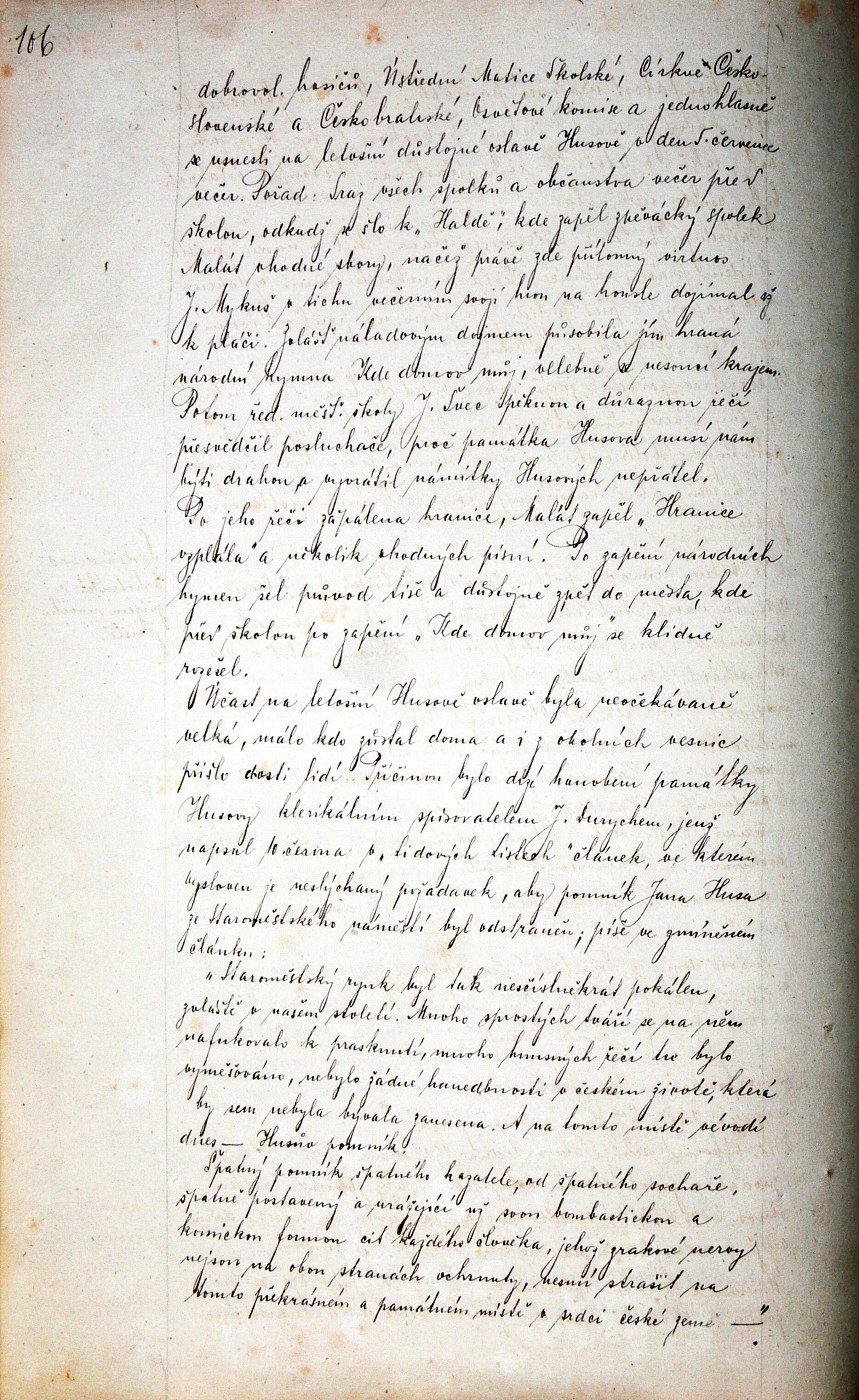 106
dobrovol. hasičů, Ústřední Matice Školské, Církve Česko-
slovenské a Českobratrské, Osvětové komise a jednohlasně
se usnesli na letošní důstojné oslavě Husově v den 5. července
večer. Pořad: Sraz všech spolků a občanstva večer před
školou, odkudž se šlo k „Haldě“, kde zapěl zpěvácký spolek
Malát vhodné sbory, načež právě zde přítomný virtuos
J. Mykuš v tichu večerním svojí hrou na housle dojímal až
k pláči. Zvlášť náladovým dojmem působila jím hraná
národní hymna Kde domov můj, velebně se nesoucí krajem.
Potom řed. měšť. školy J. Švec špěknou a důraznou řečí
přesvědčil posluchače, proč památka Husova musí nám
býti drahou a vyvrátil námitky Husových nepřátel.
Po jeho řeči zapálena hranice, Malát zapěl „Hranice
vzplála“ a několik vhodných písní. Po zapění národních
hymen šel průvod tiše a důstojně zpět do města, kde
před školou po zapění „Kde domov můj“ se klidně
rozešel.
Účast na letošní Husově oslavě byla neočekávaně
velká, málo kdo zůstal doma a i z okolních vesnic
přišlo dosti lidí. Příčinou bylo drzé hanobení památky
Husovy klerikálním spisovatelem J. Durychem, jenž
napsal 10. června v „Lidových Listech“ článek, ve kterém
vysloven je neslýchaný požadavek, aby pomník Jana Husa
ze Staroměstského náměstí byl odstraněn; píše ve zmíněném
článku:
„Staroměstský rynk byl tak nesčíslněkrát pokálen,
zvláště v našem století. Mnoho sprostých tváří se na něm
nafukovalo k prasknutí, mnoho hnusných řečí tu bylo
vyměšováno, nebylo žádné hanebnosti v českém životě, která
by sem nebyla bývala zanesena. A na tomto místě vévodí
dnes — Husův pomník.
Špatný pomník špatného kazatele, od špatného sochaře,
špatně postavený a urážející už svou bombastickou a
komickou formou cit každého člověka, jehož zrakové nervy
nejsou na obou stranách ochrnuty, nesmí strašit na
tomto překrásném a památném místě v srdci české země —“.